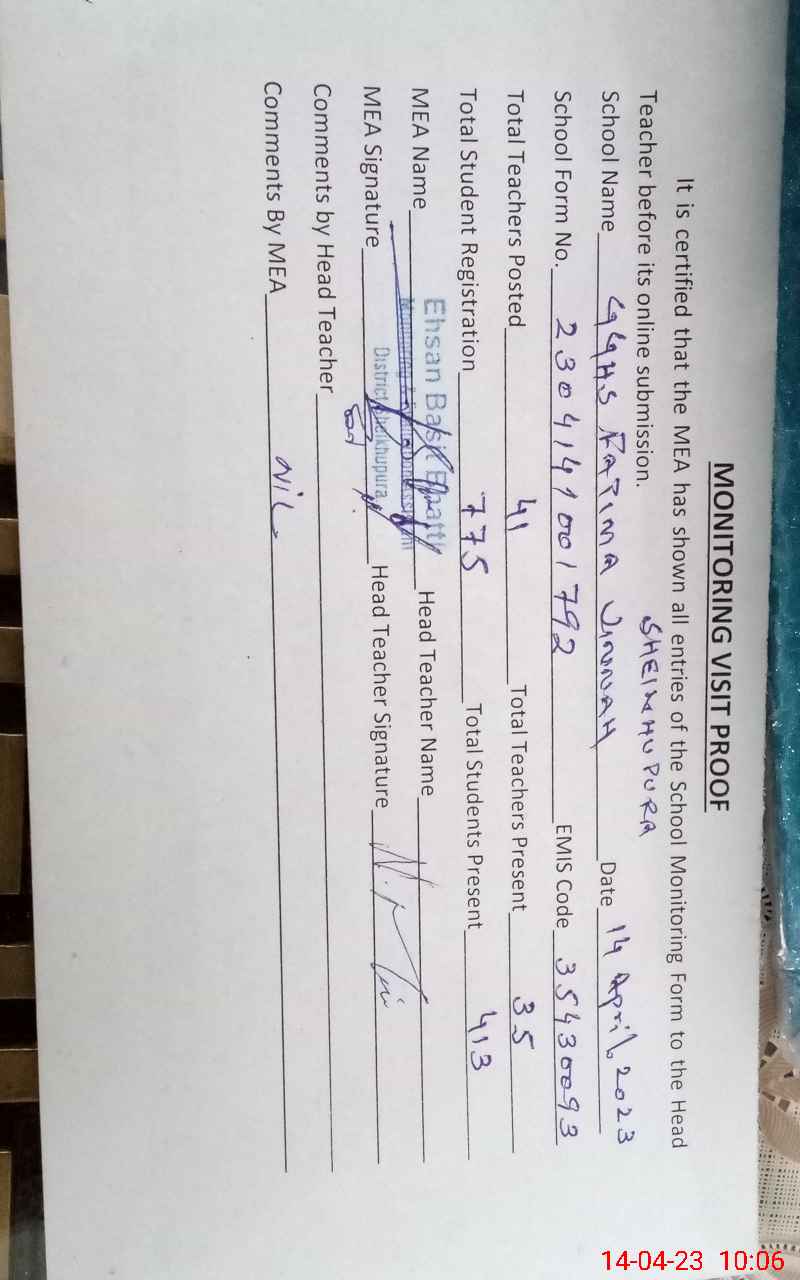 MONITORING VISIT PROOF
It is certified that the MEA has shown all entries of the School Monitoring Form to the Head
Teacher before its online submission.
SHEIKHUPURA
School Name GGHS FATIMA JINNAH Date 14 April, 2023
School Form No. 2304141001792 EMIS Code 35430093
Total Teachers Posted 41 Total Teachers Present 35
Total Student Registration 775 Total Students Present 413
MEA Name Ehsan Basit Bhatti Head Teacher Name
Monitoring
MEA Signature District Sheikhupura Head Teacher Signature
Comments by Head Teacher
Comments By MEA NiL
14-04-23 10:06